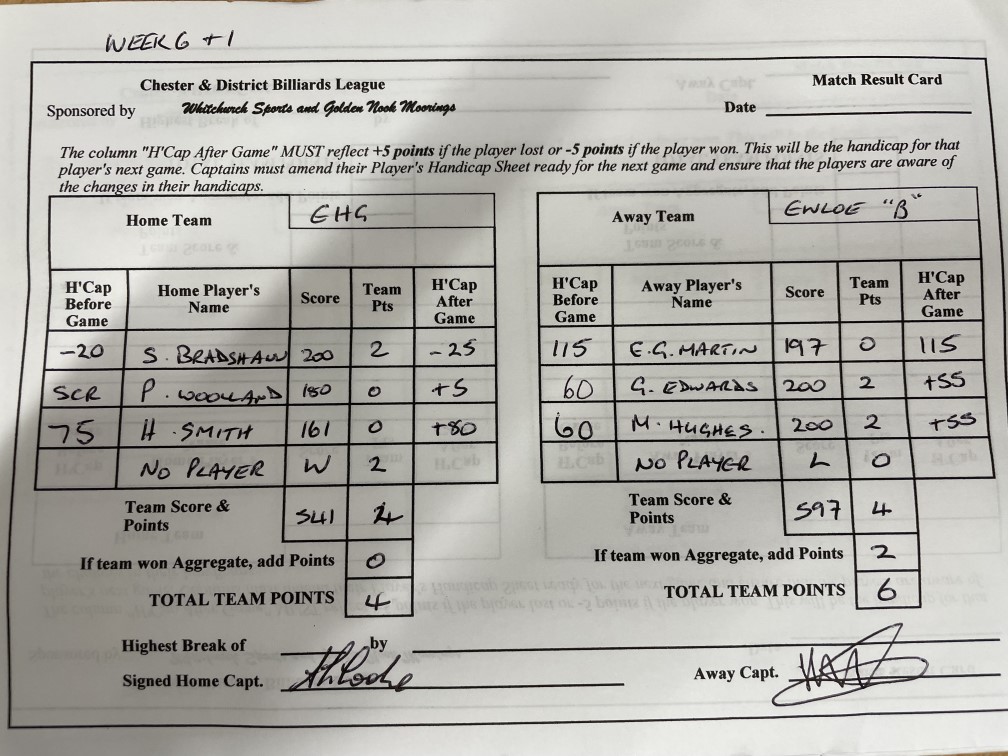 WEEK 6 + 1
Chester & District Billiards League
Match Result Card
Sponsored by Whitchurch Sports and Golden Nook Moorings
Date
The column "H'Cap After Game" MUST reflect +5 points if the player lost or -5 points if the player won. This will be the handicap for that
player's next game. Captains must amend their Player's Handicap Sheet ready for the next game and ensure that the players are aware of
the changes in their handicaps.
Home Team EHG
H'Cap Before Game Home Player's Name Score Team Pts H'Cap After Game
-20 S. BRADSHAW 200 2 -25
SCR P. WOOLLAND 180 0 +5
75 H. SMITH 161 0 +80
NO PLAYER W 2
Team Score & Points 541 4
If team won Aggregate, add Points 0
TOTAL TEAM POINTS 4
Away Team EWLOE "B"
H'Cap Before Game Away Player's Name Score Team Pts H'Cap After Game
115 E.G. MARTIN 197 0 115
60 G. EDWARDS 200 2 +55
60 M. HUGHES. 200 2 +55
NO PLAYER L 0
Team Score & Points 597 4
If team won Aggregate, add Points 2
TOTAL TEAM POINTS 6
Highest Break of by
Signed Home Capt.
Away Capt.